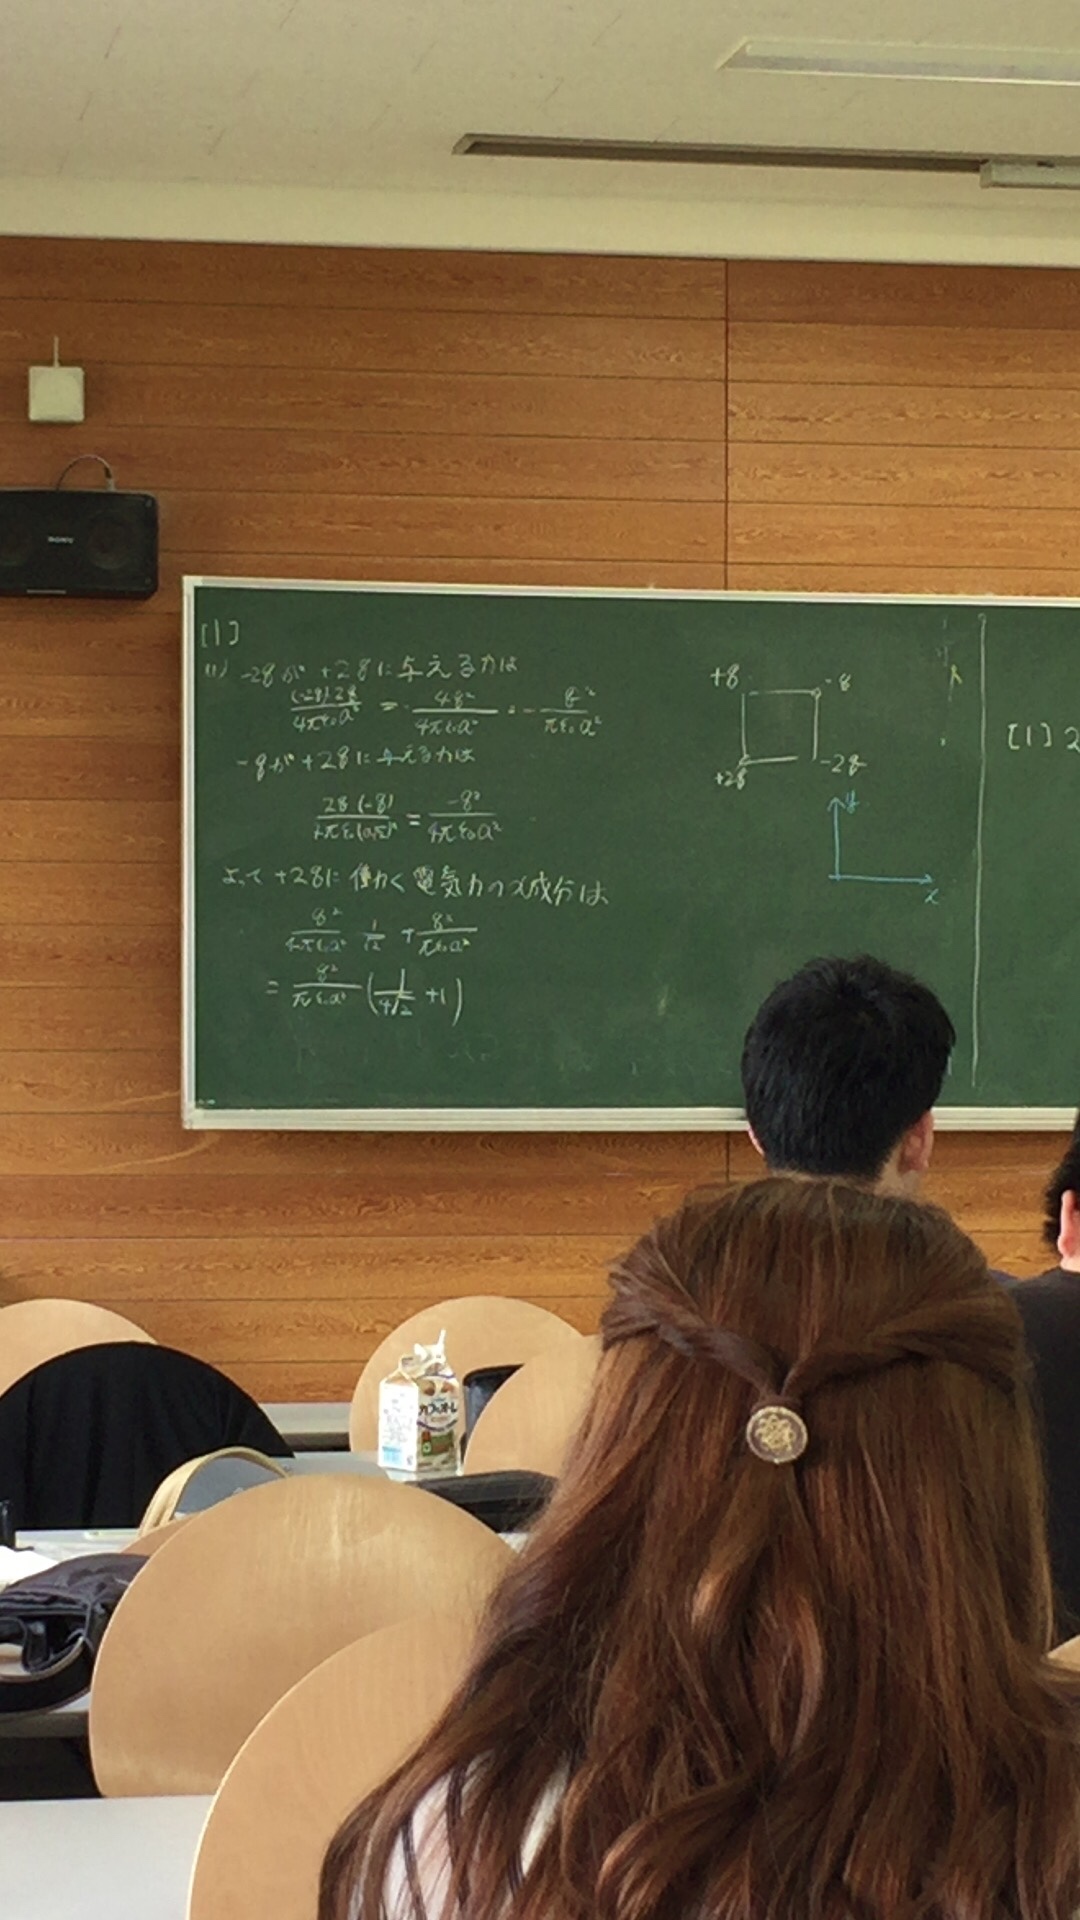 SONY
[1]
(1) -2qが +2qに与える力は
(-2q)2q/4πε₀a² = -4q²/4πε₀a² = -q²/πε₀a²
-qが+2qに与える力は
2q(-q)/4πε₀(a√2)² = -q²/4πε₀a²
よって +2qに働く電気力のx成分は
q²/4πε₀a² 1/√2 + q²/πε₀a²
= q²/πε₀a² (1/4√2 +1)
+q -q
+2q -2q
y
x
[1] 2
カフェオーレ